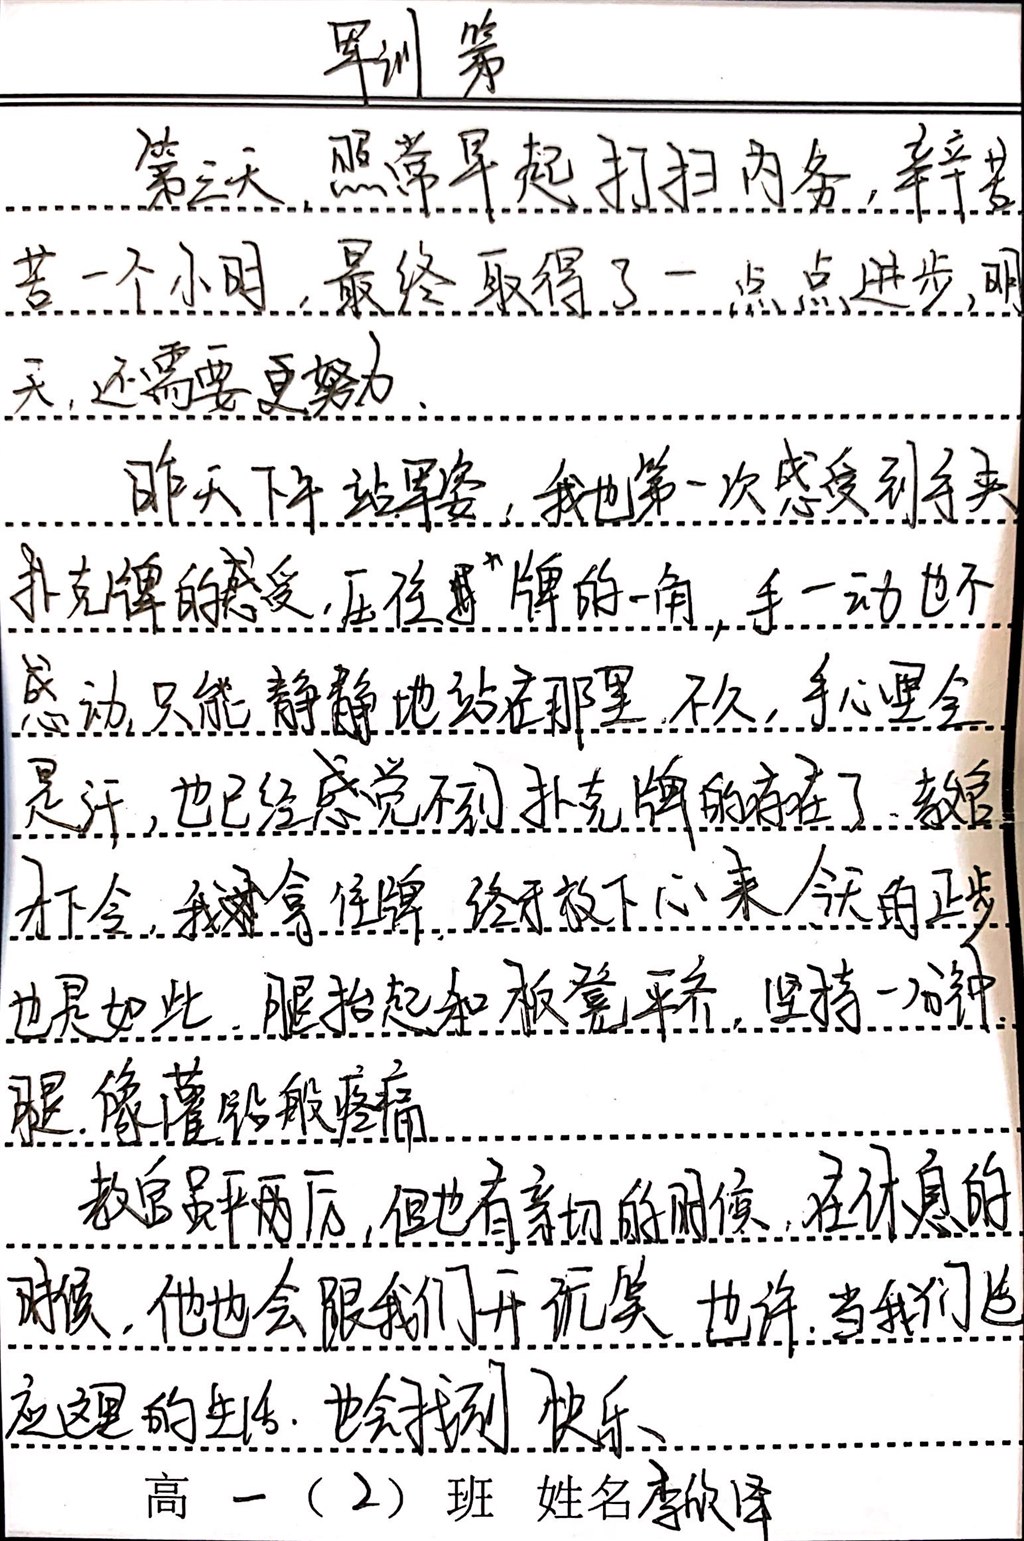 军训 第
第三天,照常早起打扫内务,辛辛苦
苦一个小时,最终取得了一点点进步,明
天,还需要更努力.
昨天下午站军姿,我也第一次感受到手夹
扑克牌的感受,压住牌的一角,手一动也不
感动,只能静静地站在那里.不久,手心里全
是汗,也已经感觉不到扑克牌的存在了.教官
才下令,我才拿住牌.终于放下心来 今天的正步
也是如此.腿抬起和板凳平齐,坚持一分钟.
腿.像灌铅般疼痛
教官虽平两后,但也有亲切的时候.在休息的
时候,他也会跟我们开玩笑 也许.当我们适
应这里的生活.也会找到快乐、
高一(2)班 姓名李欣泽